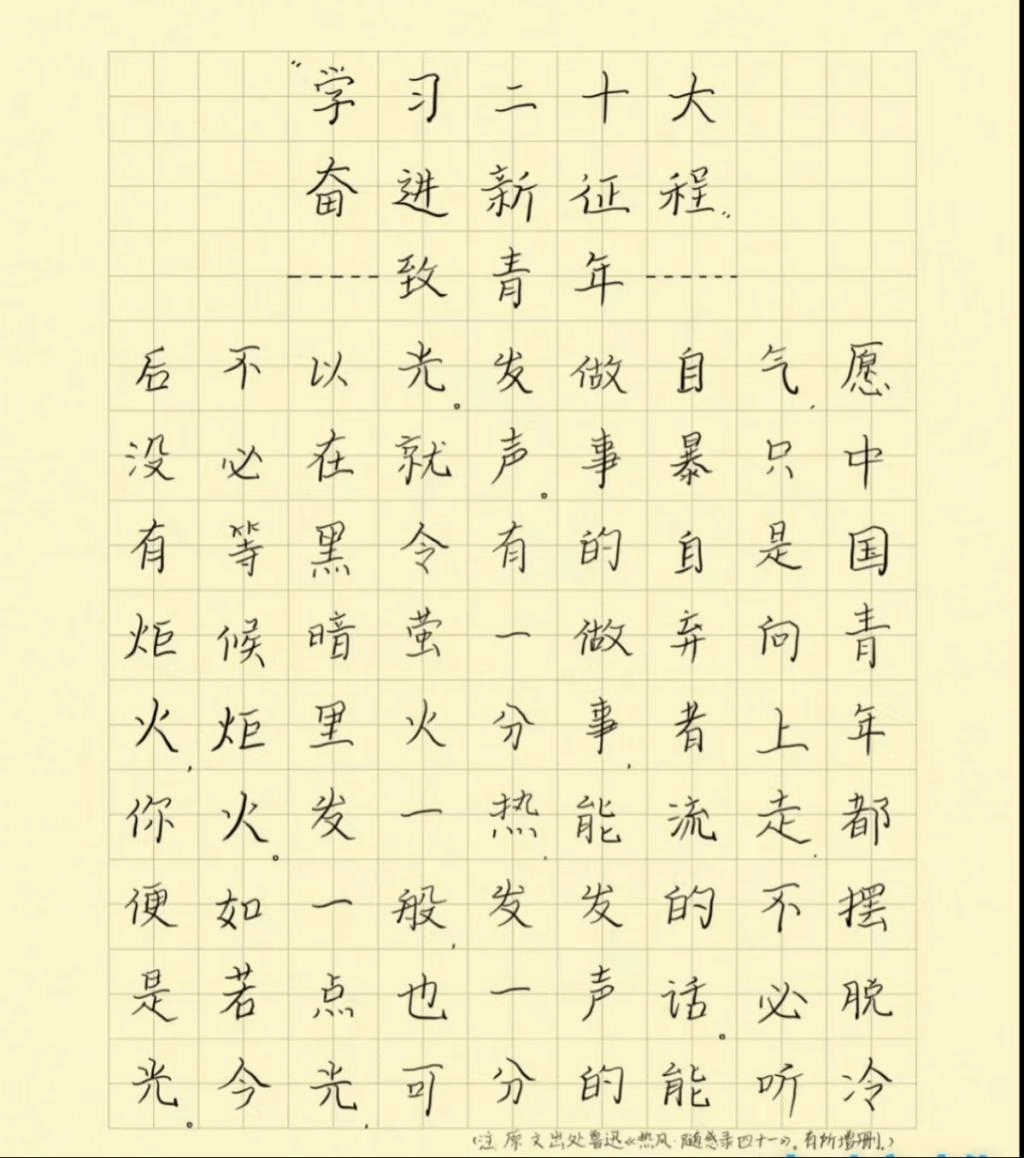 “学习二十大
奋进新征程”
-----致青年-----
愿中国青年都摆脱冷
气,只是向上走,不必听
自暴自弃者流的话。能
做事的做事,能发声的
发声。有一分热,发一分
光。就令萤火一般,也可
以在黑暗里发一点光,
不必等候炬火。如若今
后没有炬火,你便是光。
(注 原文出处鲁迅《热风·随感录四十一》。有所增删。)